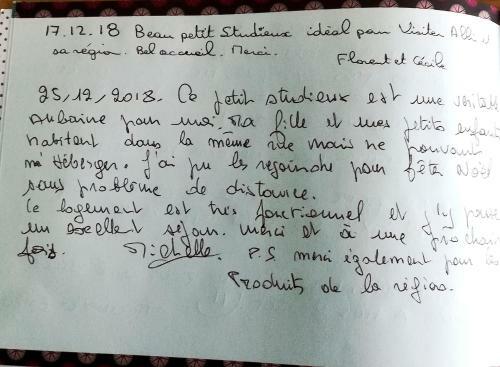 17.12.18 Beau petit studieux idéal pour visiter Albi et
sa région. Bel accueil. Merci.
Florent et Cécile
25/12/2018. Ce petit studieux est une véritable
aubaine pour moi. Ma fille et mes petits enfants
habitant dans la même rue mais ne pouvant
m'héberger. J'ai pu les rejoindre pour fêter Noël
sans problème de distance.
Ce logement est très fonctionnel et j'y passe
un excellent séjour. merci et à une prochaine
fois. Michelle. P.S merci également pour les
Produits de la région.